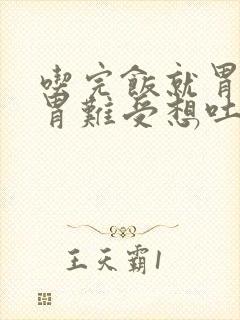 喫完飯就胃
胃難受想吐,
王天霸1